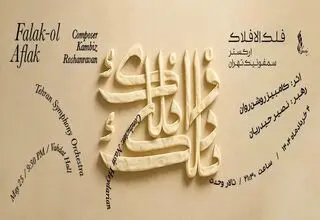 Falak-ol
Aflak
Composer
Kambiz
Roshanravan
Tehran Symphony Orchestra
May 25 / 9:30 PM / Vahdat Hall
Conductor: Nasir Heydarian
فلک‌الافلاک
ارکستر
سمفونیک تهران
اثر: کامبیز روشن‌روان
رهبر: نصیر حیدریان
۴ خردادماه ۱۴۰۴
ساعت ۲۱:۳۰ / تالار وحدت